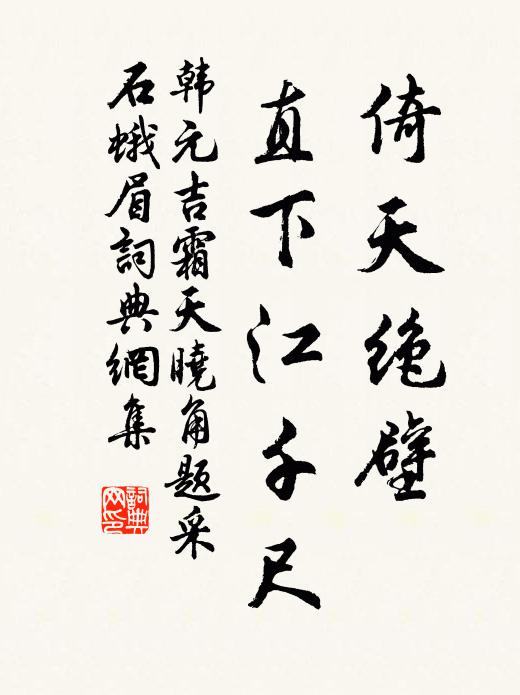 倚天绝壁
直下江千尺
韩元吉霜天曉角题采
石蛾眉詞典網集
詞典网印